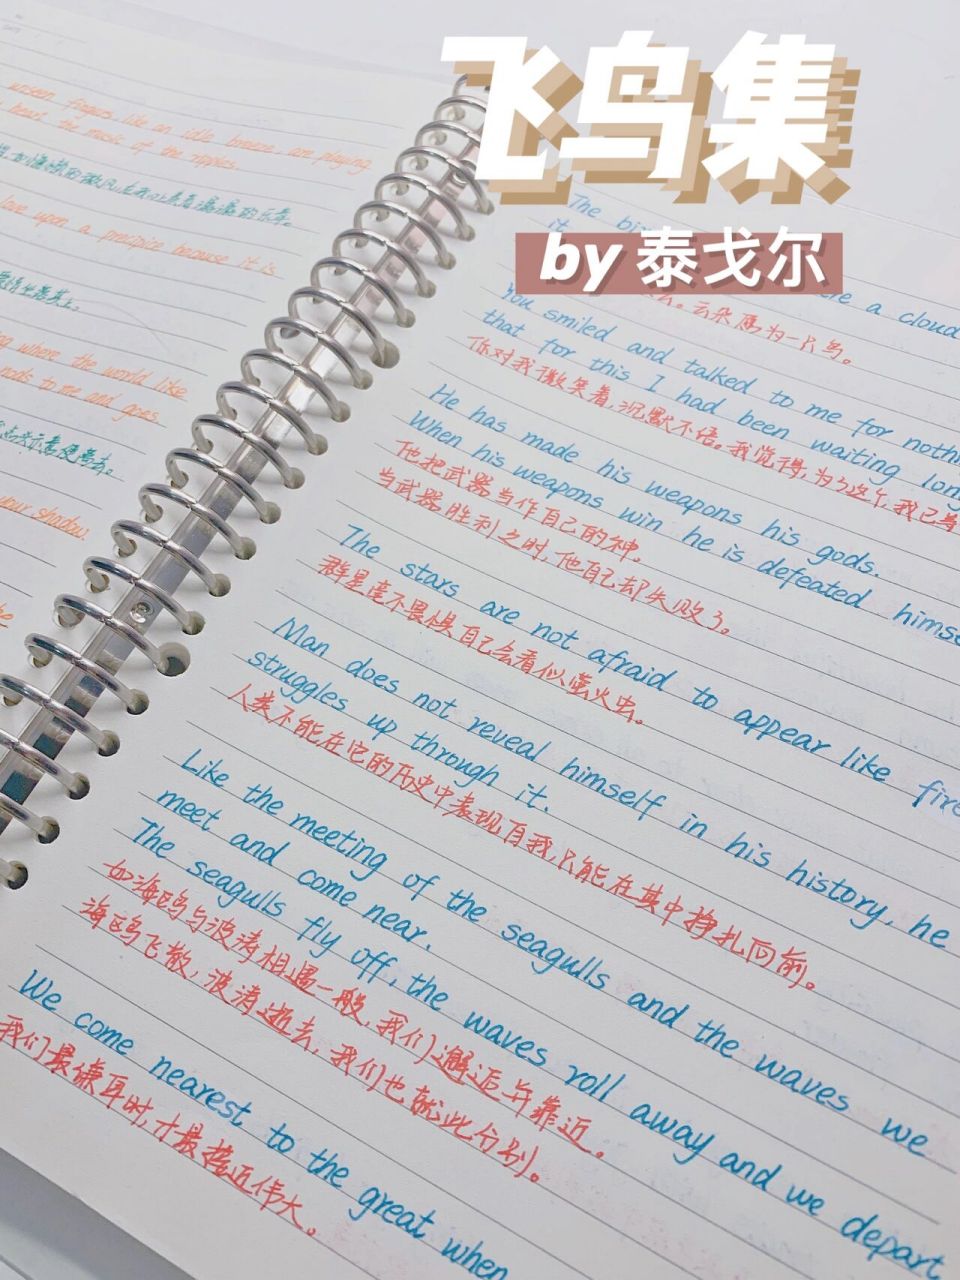 飞鸟集
by 泰戈尔
unseen fingers, like an idle breeze, are playing
heart the music of the ripples.
love upon a precipice because it is
where the world like
nods to me and goes.
your shadow
The
it
a cloud
云朵愿为一只鸟。
You smiled and talked to me for
that for this I had been waiting
你对我微笑着,沉默不语。我觉得,为了这个,我已
He has made his weapons his gods.
When his weapons win he is defeated
他把武器当作自己的神。
当武器胜利之时,他自己却失败了。
The stars are not afraid to appear like
群星毫不畏惧自己会看似萤火虫。
Man does not reveal himself in his history, he
struggles up through it.
人类不能在它的历史中表现自我,只能在其中挣扎向前。
Like the meeting of the seagulls and the waves we
meet and come near.
The seagulls fly off, the waves roll away and we depart
如海鸥与波涛相遇一般,我们邂逅并靠近。
海鸥飞散,波涛逝去,我们也就此分别。
We come nearest to the great when
我们最谦耳时,才最接近伟大。